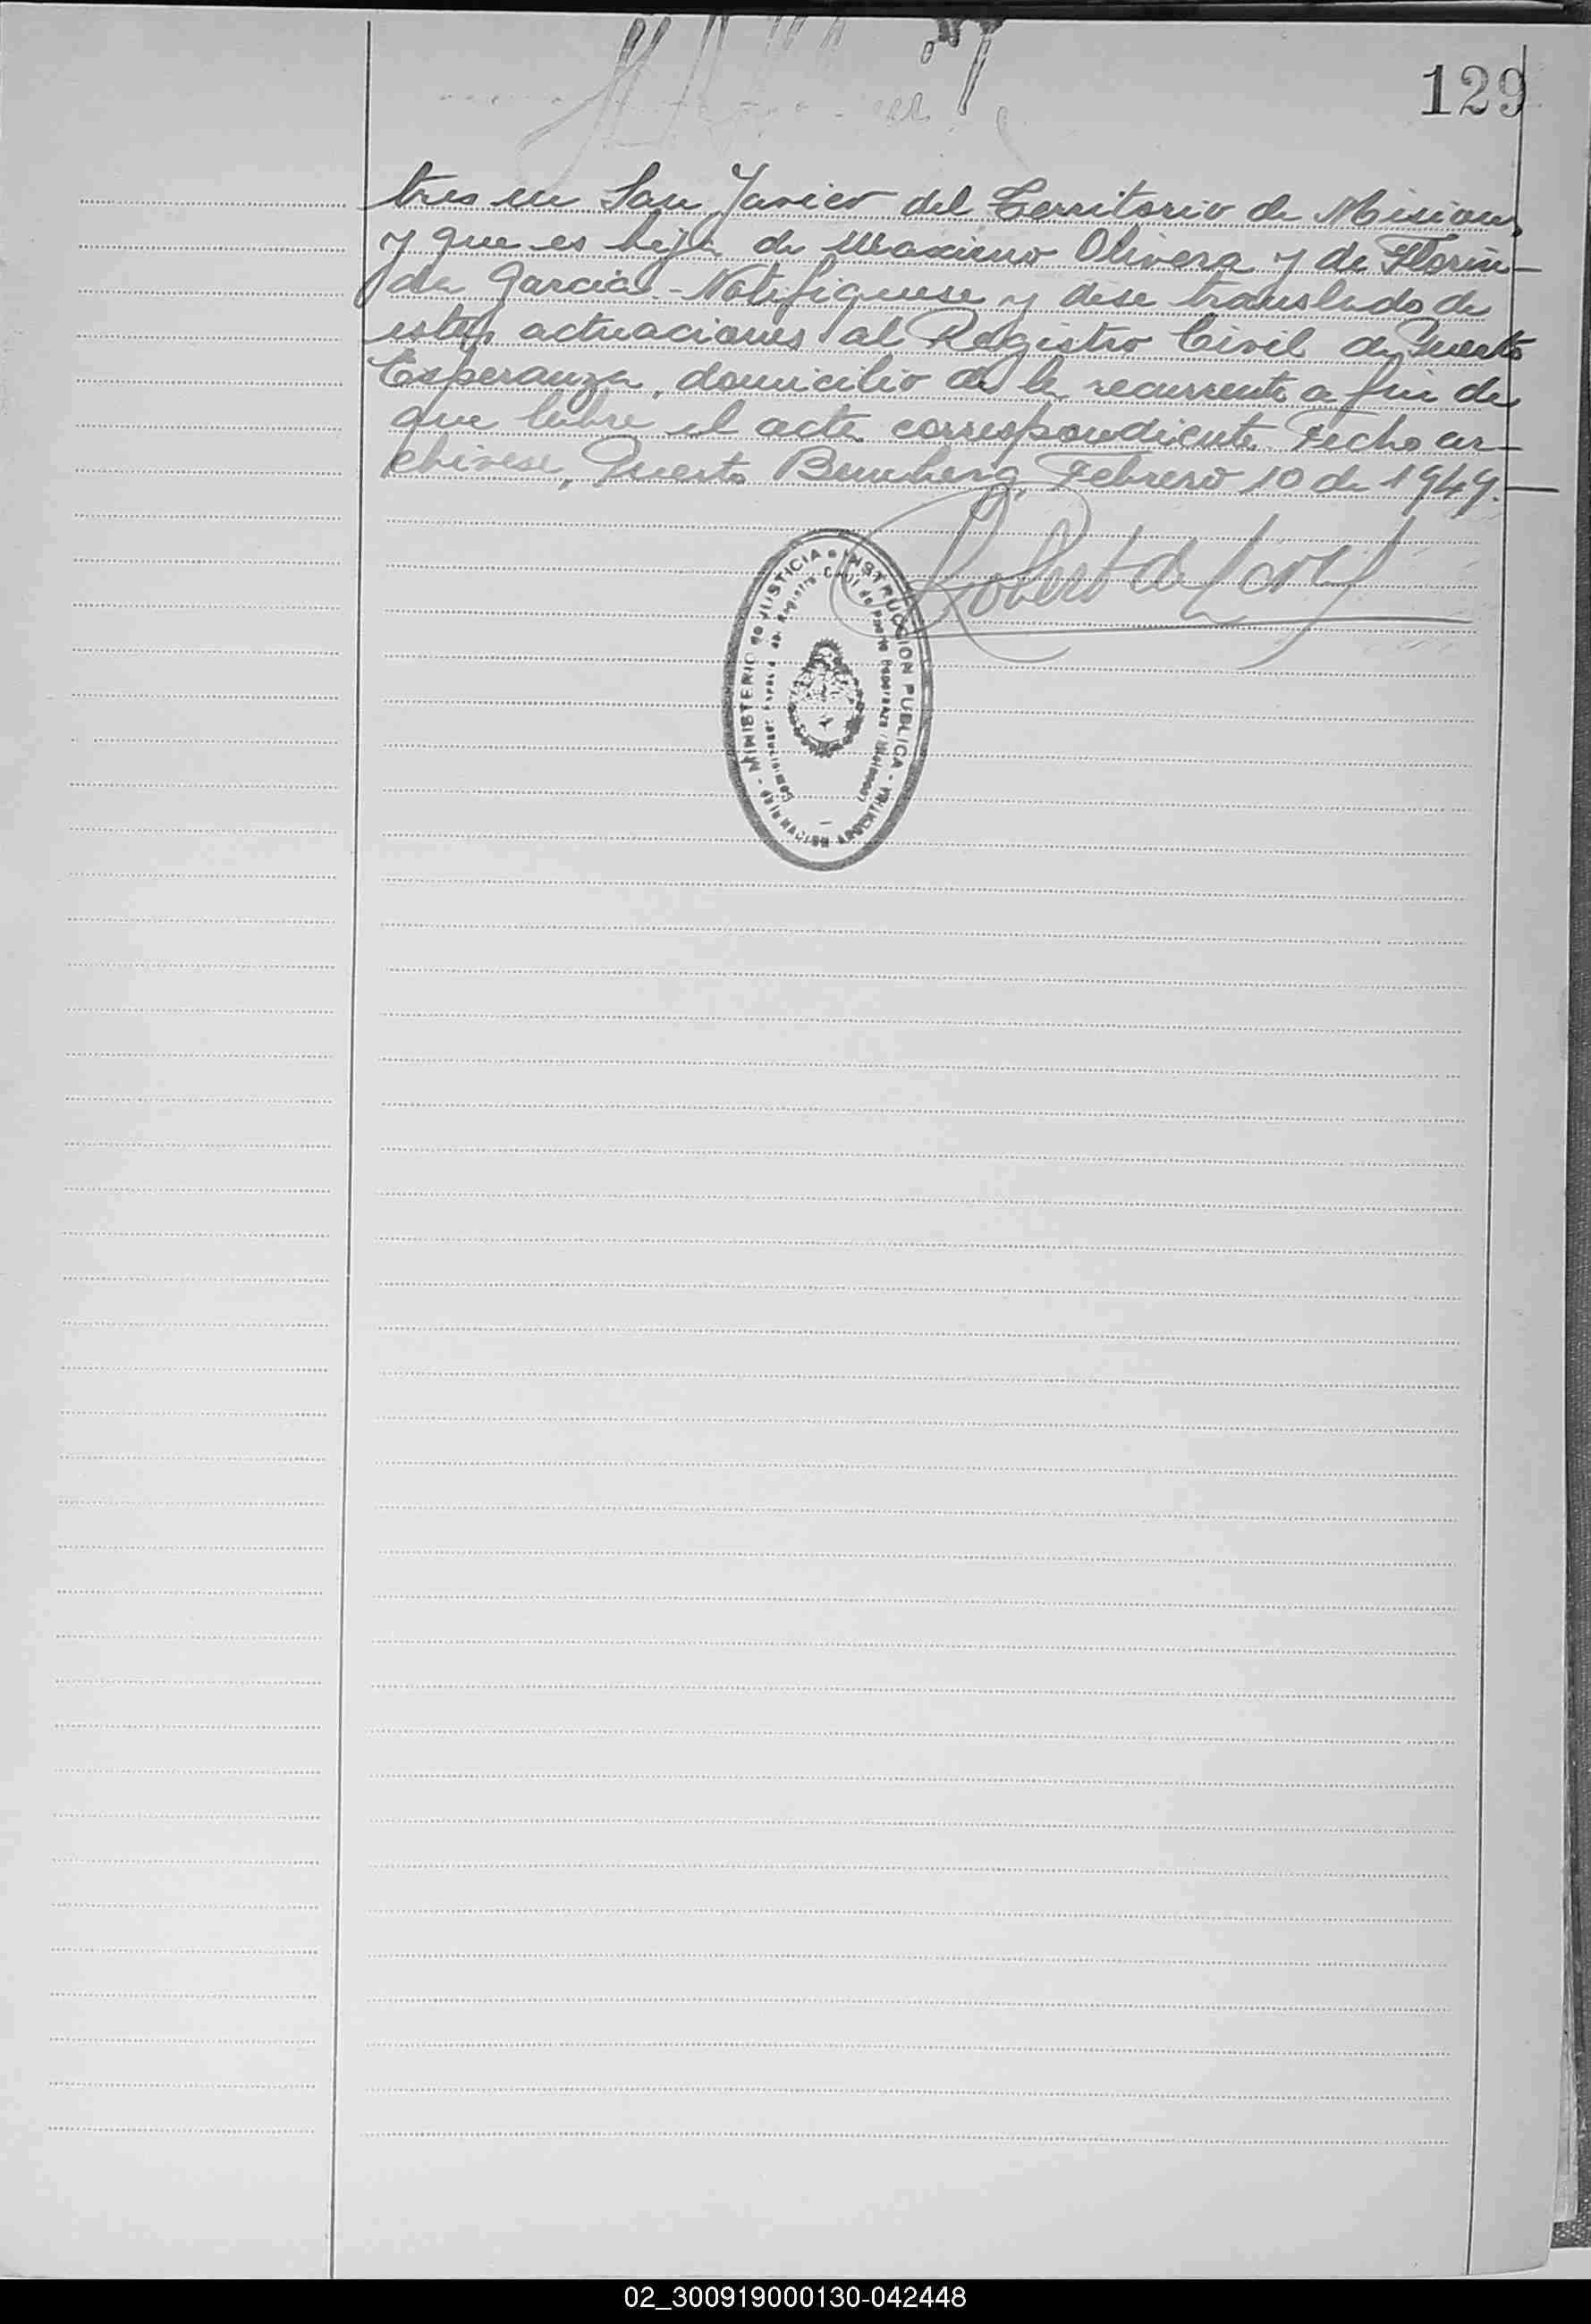 129
tres en San Javier del Territorio de Misiones
y que es hija de Maximo Olivera y de Florin-
da Garcia.- Notifiquese y dese translado de
estas actuaciones al Registro Civil de Puerto
Esperanza, domicilio de la recurrente a fin de
que labre el acta correspondiente. Fecho ar-
chivese, Puerto Bemberg, Febrero 10 de 1949.-
MINISTERIO de JUSTICIA e INSTRUCCION PUBLICA - NACION ARGENTINA
Registro Civil de Puerto Esperanza (Misiones)
02_300919000130-042448